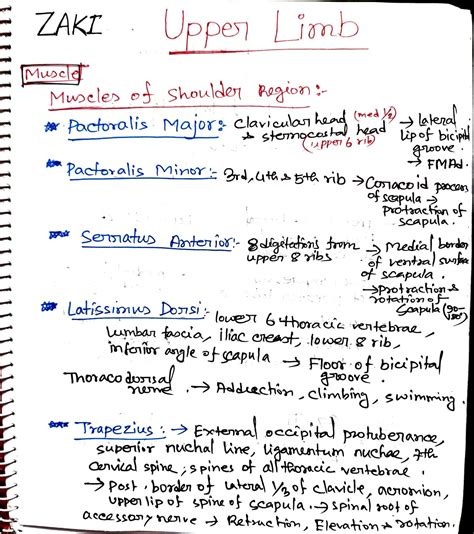 ZAKI Upper Limb
Muscle
Muscles of Shoulder Region:-
Pactoralis Major: Clavicular head (med 1/2) → lateral
& sternocostal head lip of bicipital
(upper 6 rib) groove.
→ FMAd.
Pactoralis Minor:- 3rd, 4th & 5th rib → Coracoid process
of scapula →
protraction of
scapula.
Serratus Anterior:- 8 digitations from → Medial border
upper 8 ribs of ventral surface
of scapula.
→ protraction &
rotation of
scapula
Latissimus Dorsi:- lower 6 thoracic vertebrae,
lumbar fascia, iliac creast, lower 8 rib,
inferior angle of scapula → Floor of bicipital
groove.
Thoracodorsal
nerve. → Adduction, climbing, swimming.
Trapezius: → External occipital protuberance,
superior nuchal line, ligamentum nuchae, 7th
cervical spine, spines of all thoracic vertebrae.
→ Post. border of lateral 1/3 of clavicle, acromion,
upper lip of spine of scapula. → spinal root of
accessory nerve → Retraction, Elevation & rotation.